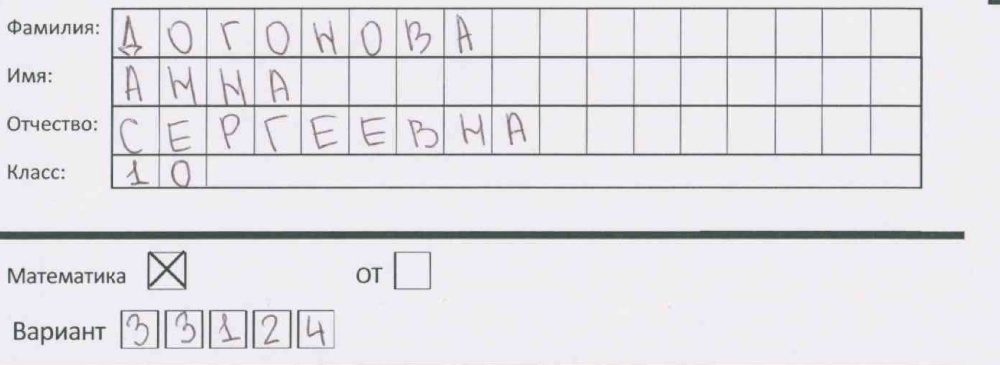 Фамилия: ДОГОНОВА
Имя: АННА
Отчество: СЕРГЕЕВНА
Класс: 10
Математика ОТ
Вариант 33124